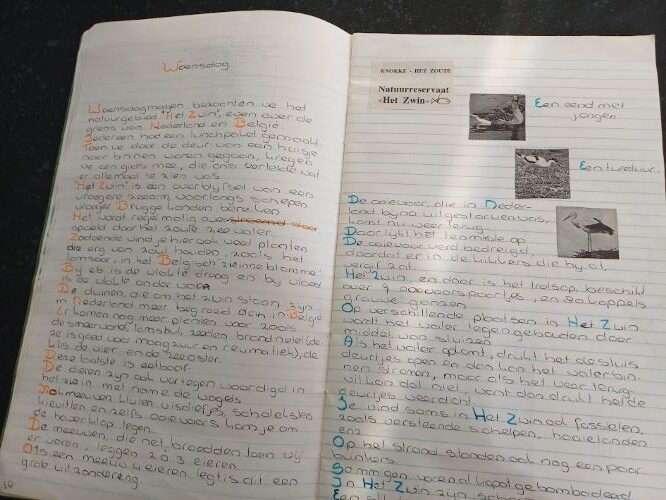 Woensdag.
Woensdagmorgen, bezochten we het
natuurgebied "Het Zwin", even over de
grens van Nederland en België
Iedereen had een lunchpakket gemaakt.
Toen we door de deur van een huisje
naar binnen waren gegaan, kregen
we een gids mee, die ons vertelde wat
er allemaal te zien was
"Het Zwin" is een overblijfsel van een
vroegere zeearm, waarlangs schepen
vroeger Brugge konden bereiken.
Het wordt regelmatig overstroomd door
spoeld door het zoute zeewater.
Zodoende vind je hier ook veel planten
die erg van zout houden, zoals het
lamsoor, in het Belgisch "zwinneblomme"
Bij eb is de vlakte droog en bij vloed
is de vlakte onder water
De duinen, die om het zwin staan, zijn
in Nederland meer begroeid dan in België
Er komen nog meer planten voor zoals
de smeerwortel, lamsoor, zeeden, brandnetel (de
ze is goed voor maagzuur en reumatiek), de
klis de vlier en de zeeaster.
Deze laatste is eetbaar.
De dieren zijn ook vertegenwoordigd in
het zwin, met name de vogels
Kokmeeuwen, kluten, visdiefjes, scholeksters
kieviten en zelfs ooievaars kan je om
de haverklap tegen.
De meeuwen, die net broedden toen wij
er waren, leggen 2 à 3 eieren
Als een meeuw 4 eieren legt is dit een
grote uitzondering.
KNOKKE - HET ZOUTE
Natuurreservaat
«Het Zwin»
Een eend met
jongen.
Een tureluur.
De ooievaar, die in Neder-
land bijna uitgestorven was,
komt nu weer terug.
Daar lijkt het tenminste op.
De ooievaar werd bedreigd
doordat er in de kikkers, die hij at,
vergif zat.
Het Zwin, en daar is het trots op, beschikt
over 9 ooievaarspaartjes, en 80 koppels
grauwe ganzen.
Op verschillende plaatsen in Het Zwin
wordt het water tegengehouden door
middel van sluizen
Als het water opkomt, drukt het de sluis
deurtjes open en dan kan het water bin-
nen stromen, maar als het weer terug
wil kan dat niet, want dan drukt het de
deurtjes weer dicht.
Je vind soms in Het Zwin ook fossielen,
zoals versteende schelpen, haaietanden
enz.
Op het strand stonden ook nog een paar
bunkers.
Sommigen waren al kapot gebombardeerd
In Het Zwin